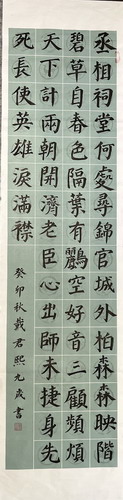 丞相祠堂何處尋錦官城外柏森森映階
碧草自春色隔葉有鸝空好音三顧頻煩
天下計兩朝開濟老臣心出師未捷身先
死長使英雄淚滿襟
癸卯秋戴君熙九歲書